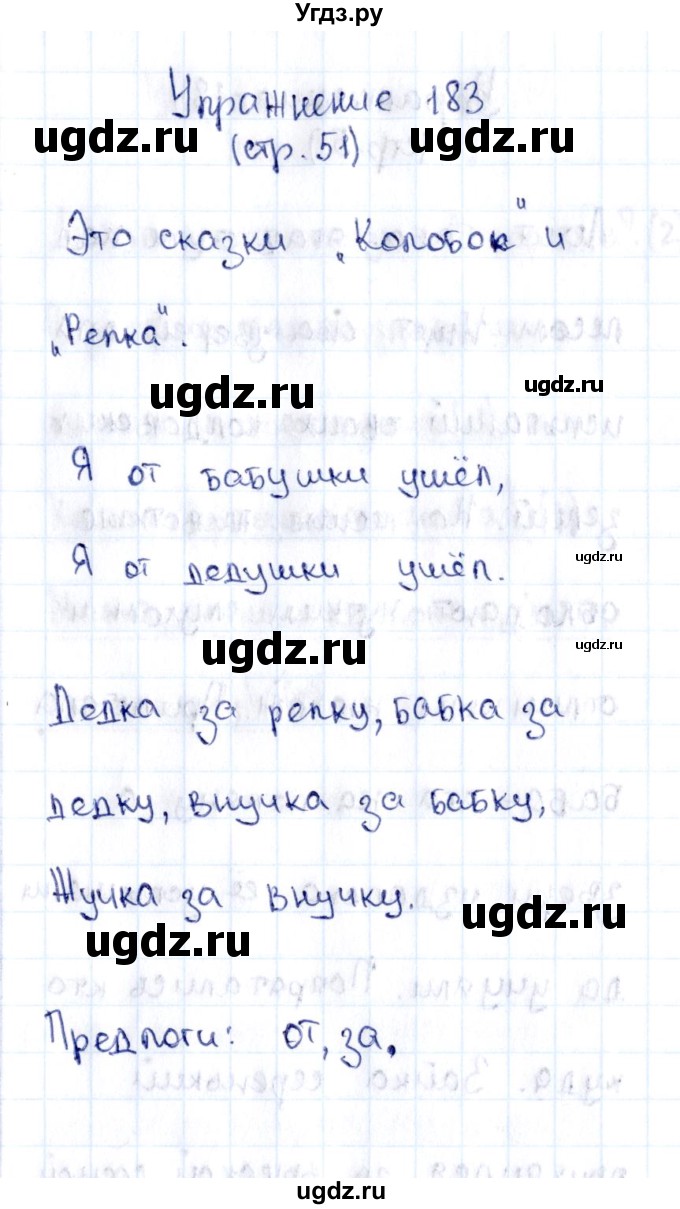 Угдз.ру
Упражнение 183
ugdz.ru (стр. 51) ugdz.ru
Это сказки „Колобок" и
„Репка".
ugdz.ru ugdz.ru
Я от бабушки ушёл,
Я от дедушки ушёл. ugdz.ru
ugdz.ru ugdz.ru
Дедка за репку, бабка за
дедку, внучка за бабку,
Жучка за внучку. ugdz.ru
ugdz.ru
Предлоги: от, за.
ugdz.ru